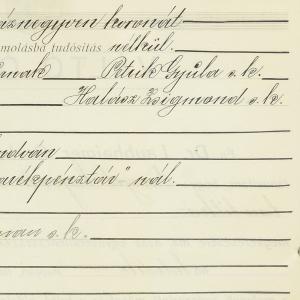 áznegyven koronát
molásba tudósítás nélkül.
Petrik Gyula s. k.
Halász Zsigmond s. k.
údván
arékpénztár" nál.
s. k.